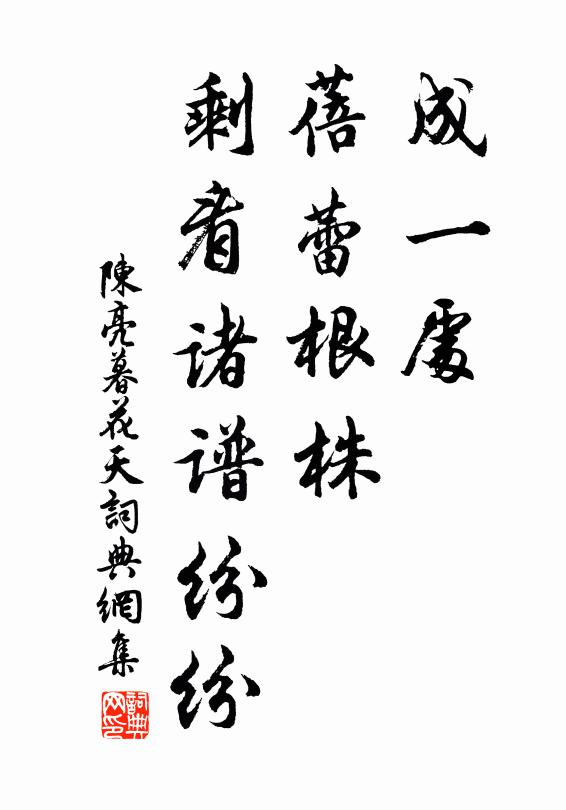 成一處
蓓蕾根株
剩看诸谱纷纷
陳亮暮花天詞典網集
詞典网印